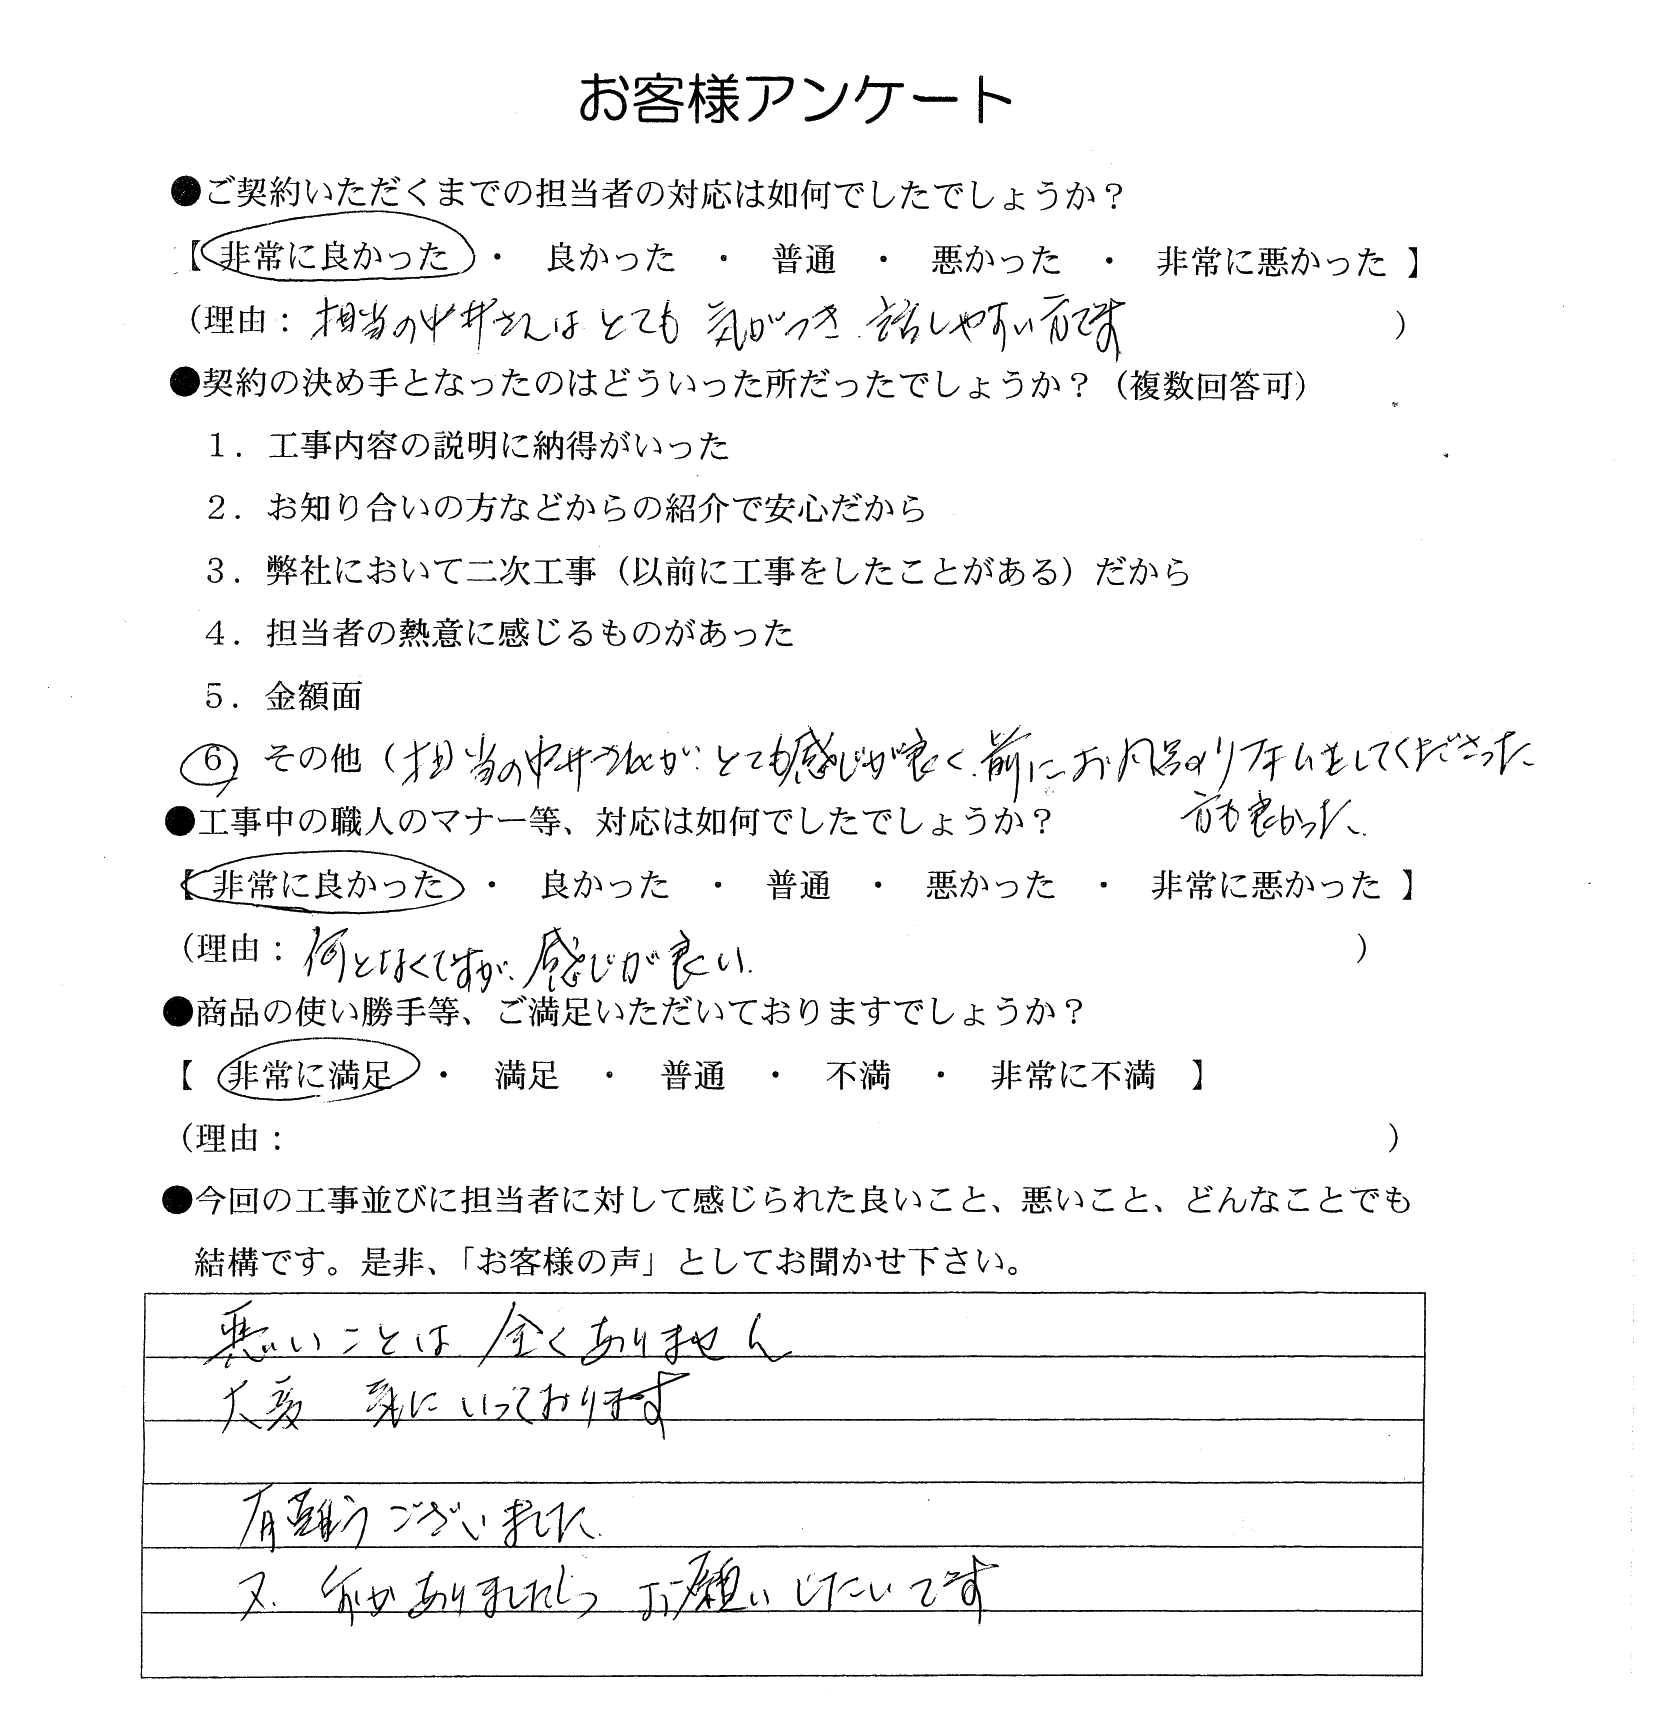 お客様アンケート
●ご契約いただくまでの担当者の対応は如何でしたでしょうか？
【 非常に良かった ・ 良かった ・ 普通 ・ 悪かった ・ 非常に悪かった 】
（理由：担当の中井さんはとても 気がつき 話しやすい方です ）
●契約の決め手となったのはどういった所だったでしょうか？（複数回答可）
１．工事内容の説明に納得がいった
２．お知り合いの方などからの紹介で安心だから
３．弊社において二次工事（以前に工事をしたことがある）だから
４．担当者の熱意に感じるものがあった
５．金額面
６ その他（担当の中井さんが、とても感じが良く、前にお風呂のリフォームをしてくださった
方も良かった、
●工事中の職人のマナー等、対応は如何でしたでしょうか？
【 非常に良かった ・ 良かった ・ 普通 ・ 悪かった ・ 非常に悪かった 】
（理由：何となくですが、感じが良い、 ）
●商品の使い勝手等、ご満足いただいておりますでしょうか？
【 非常に満足 ・ 満足 ・ 普通 ・ 不満 ・ 非常に不満 】
（理由： ）
●今回の工事並びに担当者に対して感じられた良いこと、悪いこと、どんなことでも
結構です。是非、「お客様の声」としてお聞かせ下さい。
悪いことは 全くありません
大変 気にいっております
有難うございました
又、何かありましたら お願いしたいです